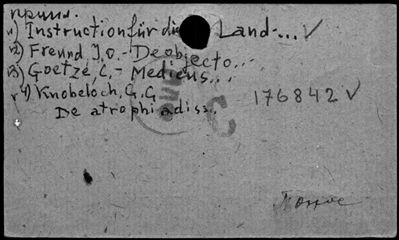 прилп.
1) Instruction für die Land-... V
2) Freund J.O. - De objecto...
3) Goetze, C. - Medicus...
4) Knobeloch, G.G
De atrophia diss.
176842 V